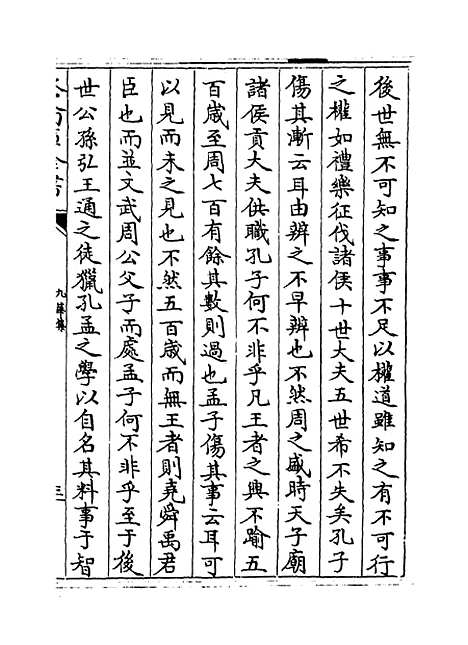 後世無不可知之事事不足以權道雖知之有不可行
之權如禮樂征伐諸侯十世大夫五世希不失矣孔子
傷其漸云耳由辨之不早辨也不然周之盛時天子廟
諸侯貢大夫供職孔子何不非乎凡王者之興不踰五
百歲至周七百有餘其數則過也孟子傷其事云耳可
以見而未之見也不然五百歲而無王者則堯舜禹君
臣也而並文武周公父子而處孟子何不非乎至于後
世公孫弘王通之徒獵孔孟之學以自名其料事于智
三